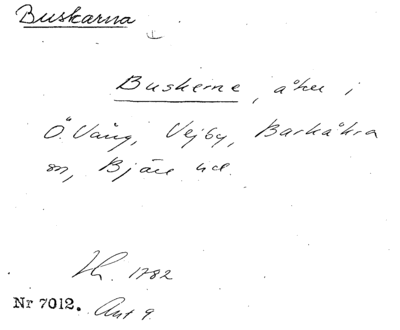 Buskarna
Buskerne, åker i
Ö. Vång, Vejby, Barkåkra
sn, Bjäre hd.
1782
Nr 7012. Akt 9.